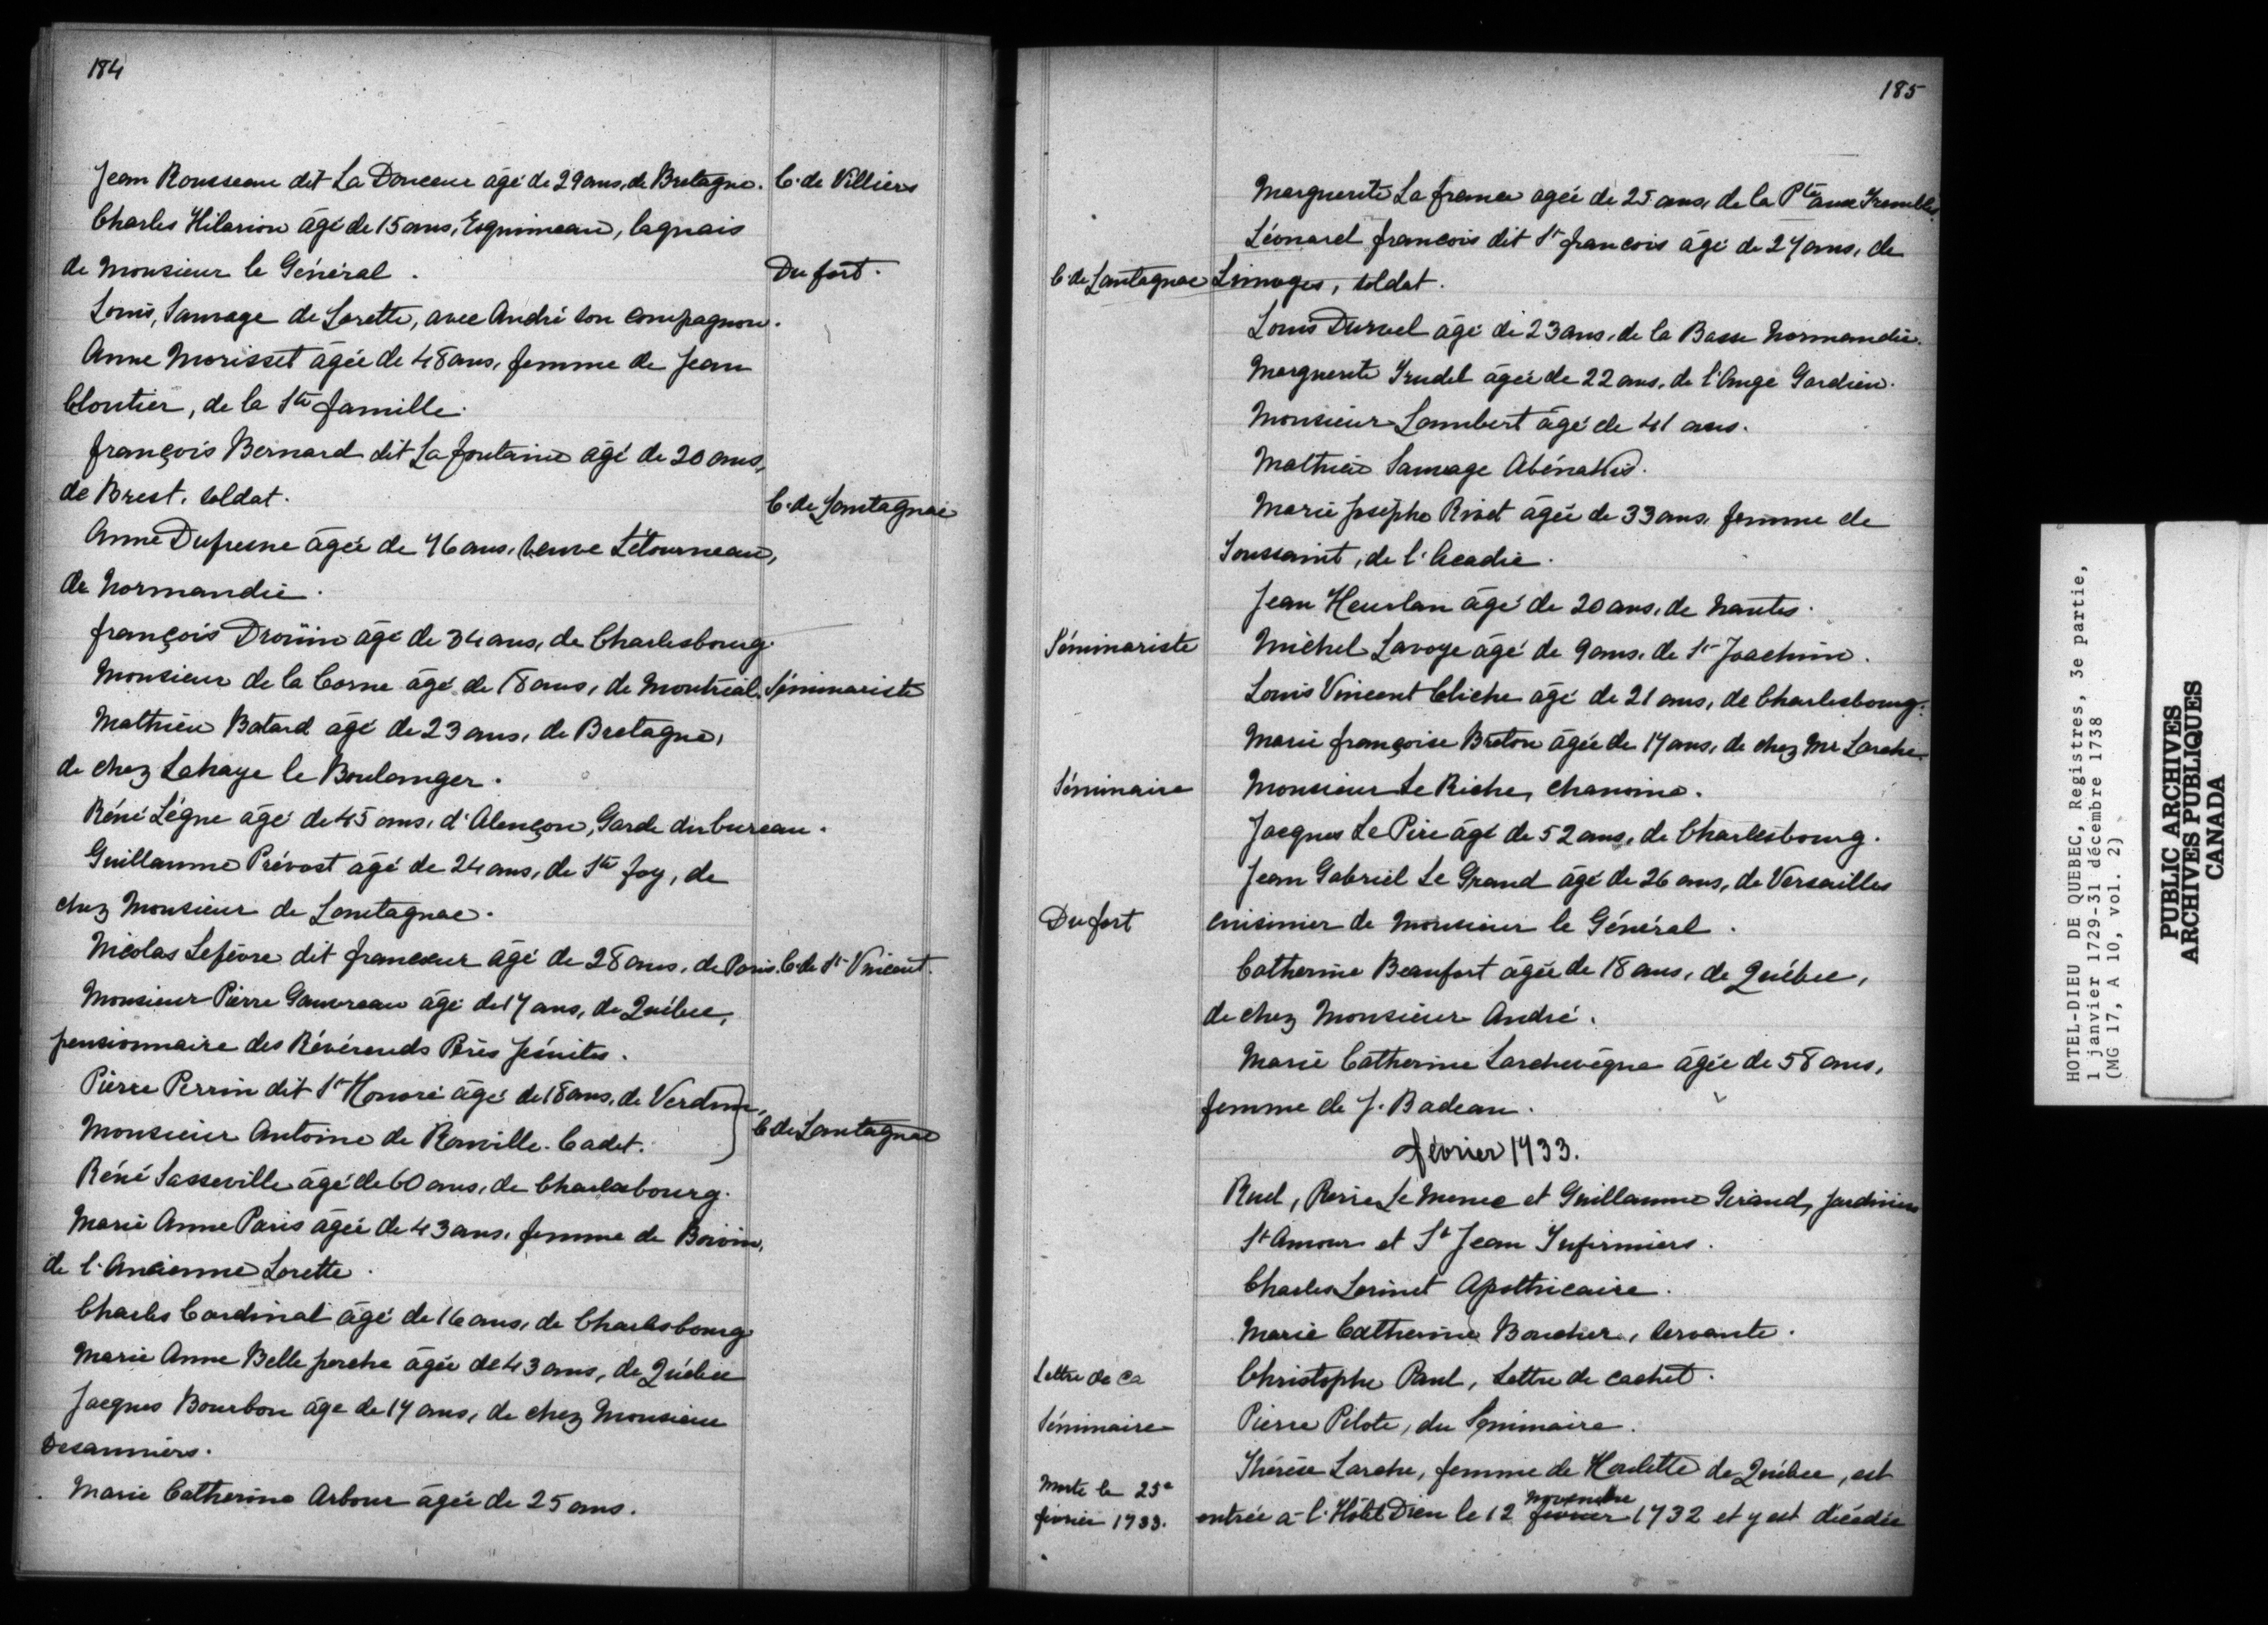 184
Jean Rousseau dit La Douceur âgé de 29 ans, de Bretagne. C. de Villiers
Charles Hilarion âgé de 15 ans, Esquimeau, laquais
de Monsieur le Général. Du fort.
Louis, Sauvage de Lorette, avec André son compagnon.
Anne Morisset âgée de 48 ans, femme de Jean
Cloutier, de la Ste famille.
françois Bernard dit La fontaine âgé de 20 ans,
de Brest, soldat. C. de Lantagnac
Anne Dufresne âgée de 76 ans, veuve Létourneau,
de Normandie.
françois Droüin âgé de 34 ans, de Charlesbourg.
Monsieur de la Corne âgé de 18 ans, de Montréal. Séminariste
Mathieu Batard âgé de 23 ans, de Bretagne,
de chez Lahaye le Boulanger.
Réné Légne âgé de 45 ans, d'Alençon, Garde du bureau.
Guillaume Prévost âgé de 24 ans, de Ste foy, de
chez Monsieur de Lantagnac.
Nicolas Lefèvre dit francoeur âgé de 28 ans, de Paris. C. de St Vincent.
Monsieur Pierre Gauvreau âgé de 17 ans, de Québec,
pensionnaire des Révérends Pères Jésuites.
Pierre Perrin dit St Honoré âgé de 18 ans, de Verdun,
Monsieur Antoine de Rouville. Cadet. C. de Lantagnac
Réné Sasseville âgé de 60 ans, de Charlesbourg.
Marie Anne Paris âgée de 43 ans, femme de Boivin,
de l'Ancienne Lorette.
Charles Cardinal âgé de 16 ans, de Charlesbourg
Marie Anne Belle perche âgée de 43 ans, de Québec
Jacques Bourbon âge de 17 ans, de chez Monsieur
Desauniers.
Marie Catherine Arbour âgée de 25 ans.
185
Marguerite La france agée de 25 ans, de la Pte aux Trembles.
Léonard francois dit St francois âgé de 27 ans, de
C. de Lantagnac Limoges, soldat.
Louis Durvel âgé de 23 ans, de la Basse Normandie.
Marguerite Trudel âgée de 22 ans, de l'Ange Gardien.
Monsieur Lambert âgé de 41 ans.
Mathieu Sauvage Abénakis.
Marie Josephe Rivet âgée de 33 ans, femme de
Toussaint, de l'Acadie.
Jean Heurlan âgé de 20 ans, de Nantes.
Séminariste Michel Lavoye âgé de 9 ans, de St Joachim.
Louis Vincent Cliche âgé de 21 ans, de Charlesbourg.
Marie françoise Breton âgée de 17 ans, de chez Mr Larche.
Séminaire Monsieur Le Riche, chanoine.
Jacques Le Pire âgé de 52 ans, de Charlesbourg.
Jean Gabriel Le Grand âgé de 26 ans, de Versailles
Du fort cuisinier de Monsieur le Général.
Catherine Beaufort âgée de 18 ans, de Québec,
de chez Monsieur André.
Marie Catherine Larchevêque âgée de 58 ans,
femme de J. Badeau.
février 1733.
Ruel, Pierre Le Menec et Guillaume Girand, Jardiniers
St Amour et St Jean Infirmiers.
Charles Lorinet Apothicaire.
Marie Catherine Boucher, servante.
Lettre de ca Christophe Paul, Lettre de cachet.
Séminaire Pierre Pilote, du Séminaire.
Thérèse Larche, femme de Houlette de Québec, est
Morte le 25e
février 1733. entrée à l'Hôtel Dieu le 12 février novembre 1732 et y est décédée
HOTEL-DIEU DE QUEBEC, Registres, 3e partie,
1 janvier 1729-31 décembre 1738
(MG 17, A 10, vol. 2)
PUBLIC ARCHIVES
ARCHIVES PUBLIQUES
CANADA